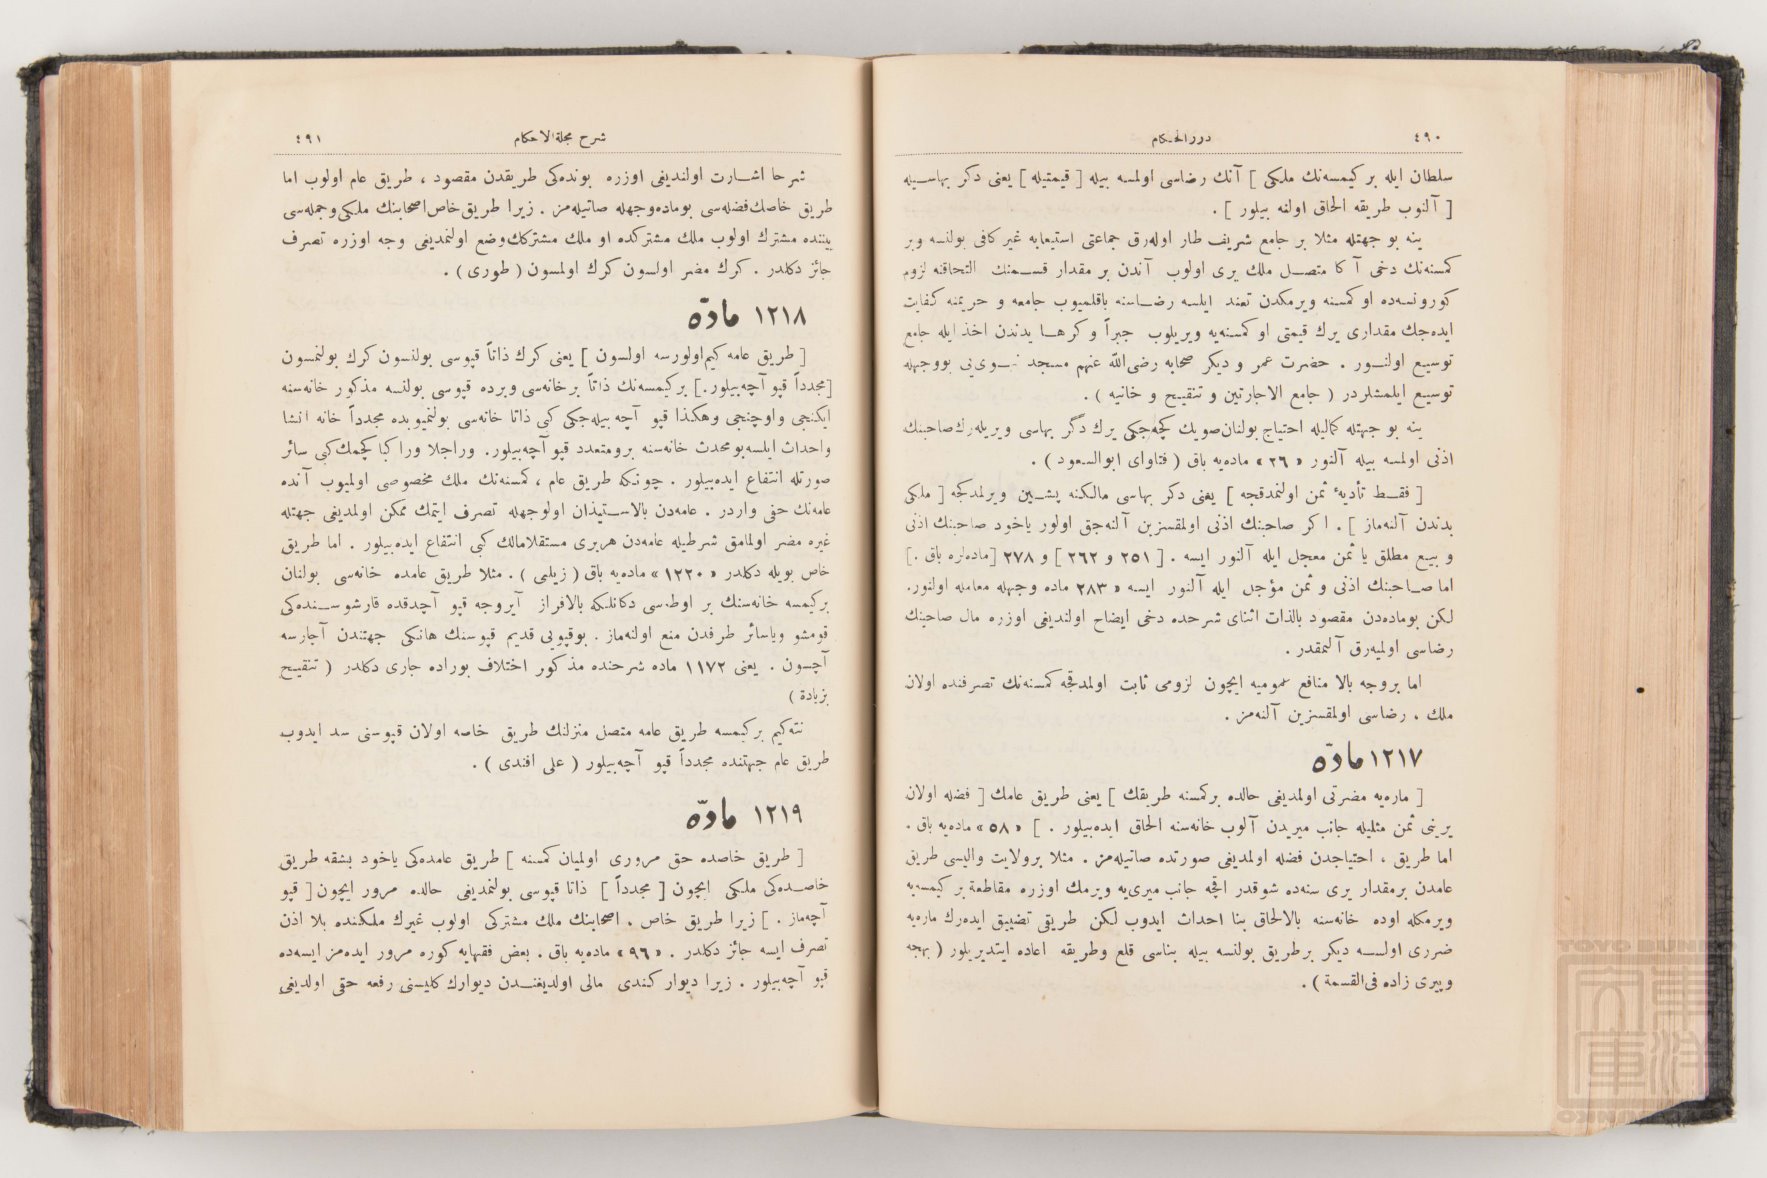 ٤٩٠ دررالحكام
سلطان ايله بر كيمسه‌نك ملكى ] آنك رضاسى اولمسه بيله [ قيمتيله ] يعنى دكر بهاسيله
[ آلنوب طريقه الحاق اولنه بيلور ] .
ينه بو جهتله مثلا بر جامع شريف طار اوله‌رق جماعتى استيعابه غير كافى بولنسه وبر
كمسنه‌نك دخى آ كا متصل ملك يرى اولوب آندن بر مقدار قسمنك التحاقنه لزوم
كورونسه‌ده او كمسنه ويرمكدن تعند ايلسه رضاسنه باقلميوب جامعه و حريمنه كفايت
ايده‌جك مقدارى يرك قيمتى او كمسنه‌يه ويريلوب جبراً و كرها يدندن اخذ ايله جامع
توسيع اولنور . حضرت عمر و ديكر صحابه رضى‌الله عنهم مسجد نبوى‌يى بووجهله
توسيع ايلمشلردر ( جامع الاجارتين و تنقيح و خانيه ) .
ينه بو جهتله كماليله احتياج بولنان‌صويك كچه‌جكى يرك دگر بهاسى ويريله‌رك‌صاحبنك
اذنى اولمسه بيله آلنور « ٢٦ » ماده‌يه باق ( فتاواى ابوالسعود ) .
[ فقط تأديهٔ ثمن اولنمدقجه ] يعنى دكر بهاسى مالكنه پشين ويرلمدكجه [ ملكى
يدندن آلنه‌ماز ] . اكر صاحبنك اذنى اولمقسزين آلنه‌جق اولور ياخود صاحبنك اذنى
و بيع مطلق يا ثمن معجل ايله آلنور ايسه . [ ٢٥١ و ٢٦٢ ] و ٢٧٨ [ماده‌لره باق .]
اما صاحبنك اذنى و ثمن مؤجل ايله آلنور ايسه « ٢٨٣ ماده وجهله معامله اولنور.
لكن بوماده‌دن مقصود بالذات اثناى شرحده دخى ايضاح اولنديغى اوزره مال صاحبنك
رضاسى اولميه‌رق آلمقدر .
اما بروجه بالا منافع عموميه ايچون لزومى ثابت اولمدقجه كمسنه‌نك تصرفنده اولان
ملك ، رضاسى اولمقسزين آلنه‌مز .
١٢١٧ مادّه
[ ماره‌يه مضرتى اولمديغى حالده بركمسنه طريقك ] يعنى طريق عامك [ فضله اولان
يرينى ثمن مثليله جانب ميريدن آلوب خانه‌سنه الحاق ايده‌بيلور . ] « ٥٨ » ماده‌يه باق .
اما طريق ، احتياجدن فضله اولمديغى صورتده صاتيله‌مز . مثلا برولايت واليسى طريق
عامدن برمقدار يرى سنه‌ده شوقدر اقچه جانب ميرى‌يه ويرمك اوزره مقاطعة بر كيمسه‌يه
ويرمكله اوده خانه‌سنه بالالحاق بنا احداث ايدوب لكن طريقى تضييق ايده‌رك ماره‌يه
ضررى اولسه ديكر برطريق بولنسه بيله بناسى قلع وطريقه اعاده ايتديريلور ( بهجه
وپيرى زاده فى‌القسمة ) .
شرح مجلة‌الاحكام ٤٩١
شرحا اشارت اولنديغى اوزره بونده‌كى طريقدن مقصود ، طريق عام اولوب اما
طريق خاصك‌فضله‌سى بوماده‌وجهله صاتيله‌مز . زيرا طريق‌خاص‌اصحابنك ملكى‌وجمله‌سى
بيننده مشترك اولوب ملك مشتركده او ملك مشتركك‌وضع اولنمديغى وجه اوزره تصرف
جائز دكلدر . كرك مضر اولسون كرك اولمسون ( طورى ) .
١٢١٨ مادّه
[ طريق عامه كيم‌اولورسه اولسون ] يعنى كرك ذاتاً قپوسى بولنسون كرك بولنمسون
[مجدداً قپو آچه‌بيلور.] بركيمسه‌نك ذاتاً برخانه‌سى وبرده قپوسى بولنسه مذكور خانه‌سنه
ايكنجى واوچنجى وهكذا قپو آچه بيله‌جكى كبى ذاتا خانه‌سى بولنميوبده مجدداً خانه انشا
واحداث ايلسه‌بومحدث خانه‌سنه برومتعدد قپو آچه‌بيلور. وراجلا وراكبا كچمك‌كبى سائر
صورتله انتفاع ايده‌بيلور . چونكه طريق عام ، كمسنه‌نك ملك مخصوصى اولميوب آنده
عامه‌نك حقى واردر . عامه‌دن بالاستيذان اولوجهله تصرف ايتمك ممكن اولمديغى جهتله
غيره مضر اولمامق شرطيله عامه‌دن هربرى مستقلامالك كبى انتفاع ايده‌بيلور . اما طريق
خاص بويله دكلدر « ١٢٢٠ » ماده‌يه باق ( زيلعى ) . مثلا طريق عامده خانه‌سى بولنان
بركيمسه خانه‌سنك بر اوطه‌سى دكانلكه بالافراز آيروجه قپو آچدقده قارشوسنده‌كى
قومشو وياسائر طرفدن منع اولنه‌ماز . بوقپويى قديم قپوسنك هانكى جهتندن آچارسه
آچسون . يعنى ١١٧٢ ماده شرحنده مذكور اختلاف بوراده جارى دكلدر ( تنقيح
بزيادة )
نته‌كيم بركيمسه طريق عامه متصل منزلنك طريق خاصه اولان قپوسنى سد ايدوب
طريق عام جهتنده مجدداً قپو آچه‌بيلور ( على افندى ) .
١٢١٩ مادّه
[ طريق خاصده حق مرورى اولميان كمسنه ] طريق عامده‌كى ياخود بشقه طريق
خاصده‌كى ملكى ايچون [ مجدداً ] ذاتا قپوسى بولنمديغى حالده مرور ايچون [ قپو
آچه‌ماز . ] زيرا طريق خاص . اصحابنك ملك مشتركى اولوب غيرك ملكنده بلا اذن
تصرف ايسه جائز دكلدر . « ٩٦ » ماده‌يه باق . بعض فقهايه كوره مرور ايده‌مز ايسه‌ده
قپو آچه‌بيلور . زيرا ديوار كندى مالى اولديغندن ديوارك كليسنى رفعه حقى اولديغى
TOYO BUNKO